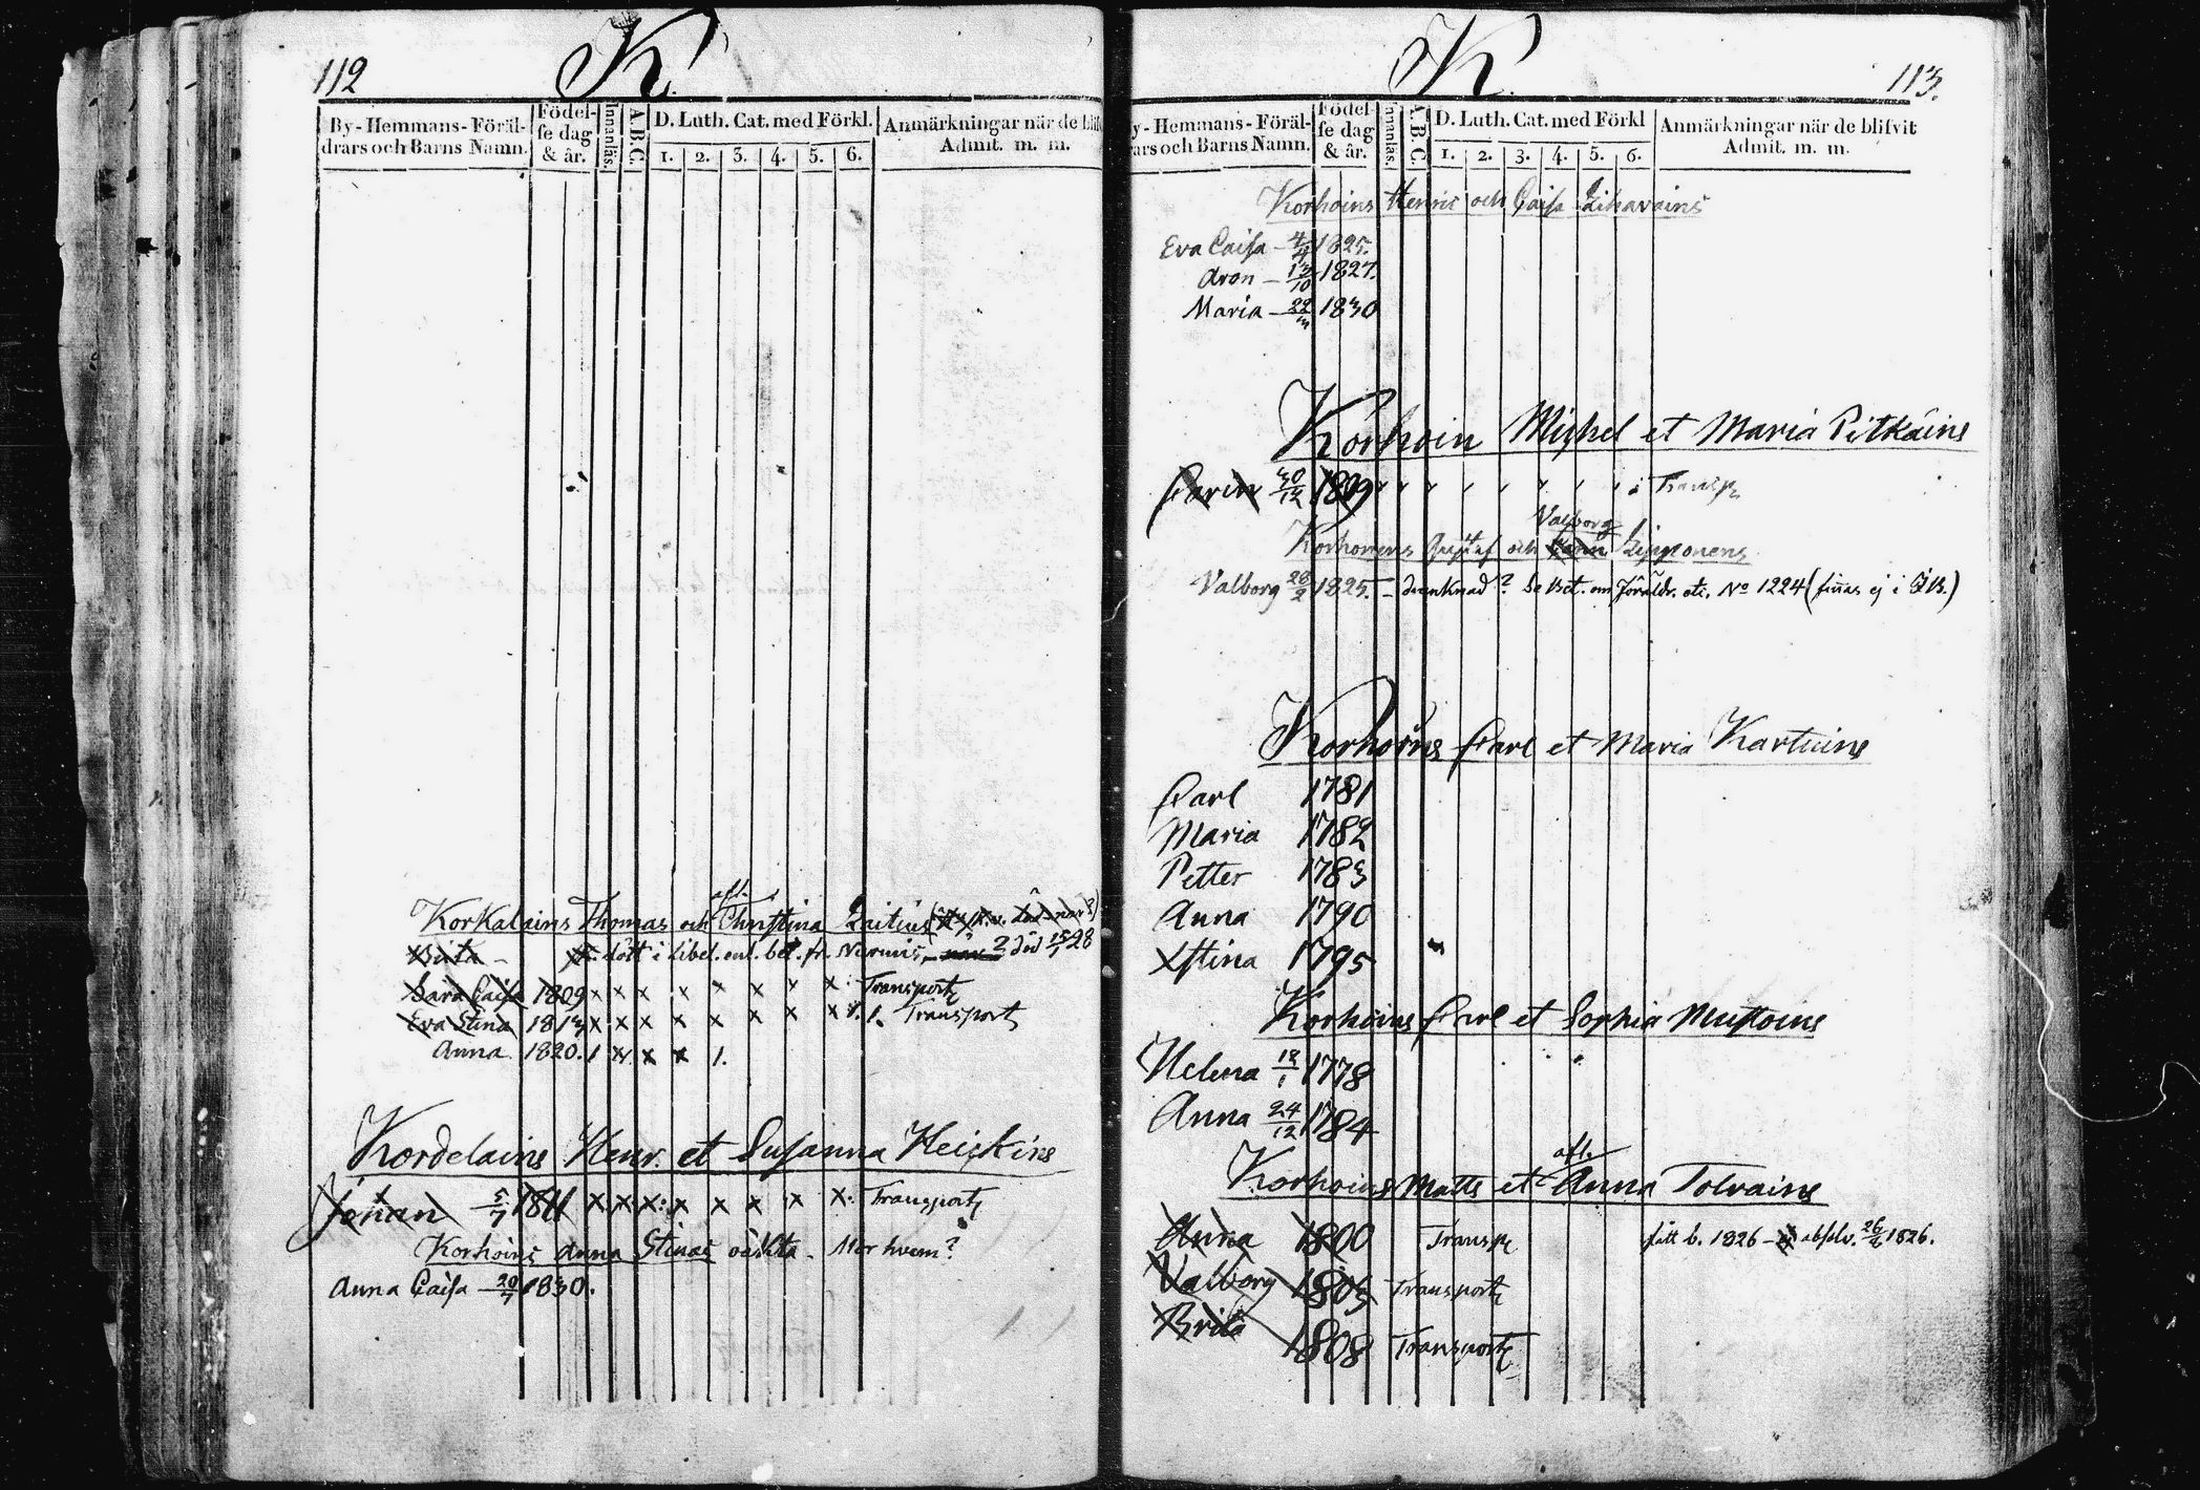 112
K.
By-Hemmans-Föräl-
drars och Barns Namn.
Födel-
se dag
& år.
Innanläs.
A.B.C.
D. Luth. Cat. med Förkl.
1. 2. 3. 4. 5. 6.
Anmärkningar när de blif
Admit. m. m.
Korkalains Thomas och afl. Christina
dött i Libel. enl. bet. fr. Nurmis, död 15/1 28
Sara Caisa 1809 x x x x x x x x Transport
Eva Stina 1813 x x x x x x x x Transport
Anna 1820. 1 x x x 1.
Kordelains Henr. et Susanna Heiskins
Johan 5/7 1811 x x x x x x x x Transport
Korhoins Anna Stinas oäkta. Mor hvem?
Anna Caisa 20/7 1830.
K.
113.
y-Hemmans-Föräl-
ars och Barns Namn.
Födel-
se dag
& år.
Innanläs.
A.B.C.
D. Luth. Cat. med Förkl
1. 2. 3. 4. 5. 6.
Anmärkningar när de blifvit
Admit. m. m.
Korhoins Henric och Caisa Lihavains
Eva Caisa 4/4 1825.
Aron 13/10 1827.
Maria 1830
Korhoin Michel et Maria Pitkäins
Carin 30/12 1809 Transp
Valborg
Korhonens Gustaf och Carin Lipponens
Valborg 28/2 1825. Se Bet. om Föräldr. etc. No 1224 (finnas ej i
Korhoins Carl et Maria Kartuins
Carl 1781
Maria 1782
Petter 1783
Anna 1790
Xstina 1795
Korhoins Carl et Sophia Mustoins
Helena 18/1 1778
Anna 24/12 1784
afl.
Korhoins Matts et Anna Tolvains
Anna 1800 Transp fått b. 1826 absolv. 1826.
Valborg 1803 Transport
Brita 1808 Transport